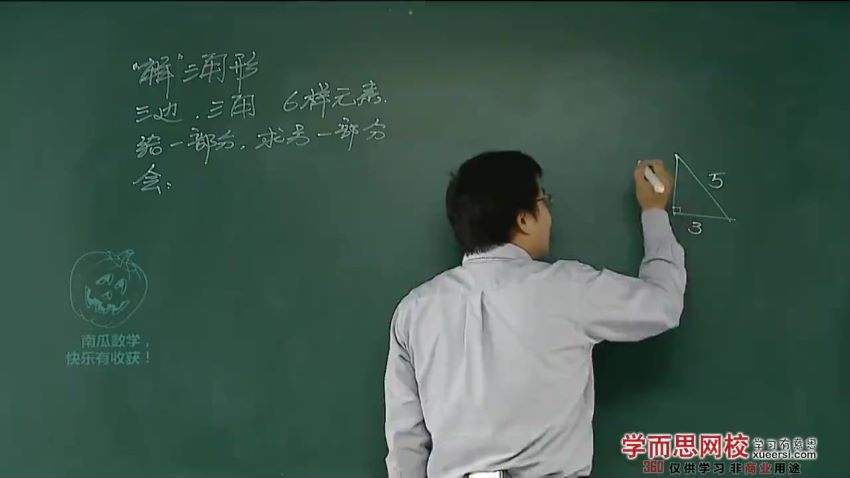 “解”三角形
三边、三角 6样元素.
给一部分,求另一部分
会:
5
3
南瓜数学,
快乐有收获!
学而思网校 学习有意思
xueersi.com
360 仅供学习 非商业用途